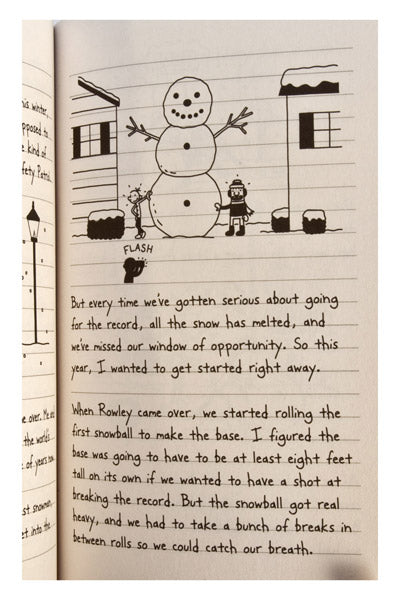 winter,
kind of
FLASH
But every time we've gotten serious about going
for the record, all the snow has melted, and
we've missed our window of opportunity. So this
year, I wanted to get started right away.
over. Me
the world's
of years now.
snowman,
into the
When Rowley came over, we started rolling the
first snowball to make the base. I figured the
base was going to have to be at least eight feet
tall on its own if we wanted to have a shot at
breaking the record. But the snowball got real
heavy, and we had to take a bunch of breaks in
between rolls so we could catch our breath.